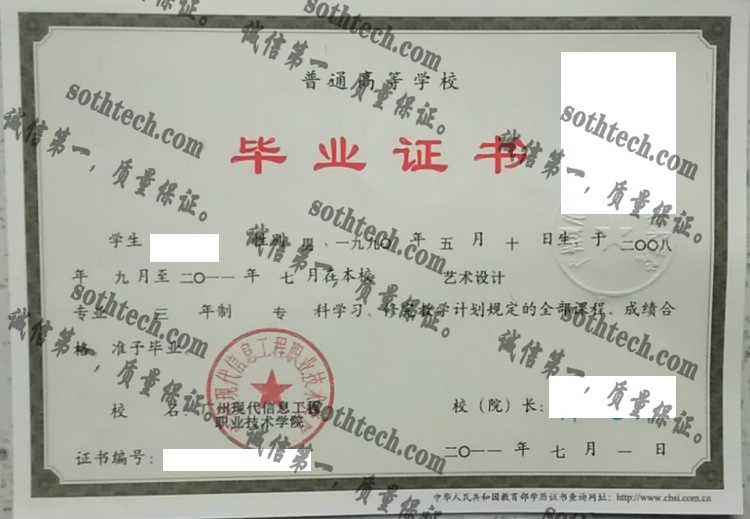 普通高等学校
毕业证书
学生 性别 男，一九九〇年 五 月 十 日生，于 二〇〇八
年 九 月至 二〇一一 年 七 月在本校 艺术设计
专业 三 年制 专 科学习，修完教学计划规定的全部课程，成绩合
格，准予毕业。
校 名：广州现代信息工程
职业技术学院
校（院）长：
证书编号：
二〇一一 年 七 月 一 日
中华人民共和国教育部学历证书查询网址：http://www.chsi.com.cn
sothtech.com
诚信第一，质量保证。
sothtech.com
诚信第一，质量保证。
sothtech.com
诚信第一，质量保证。
sothtech.com
诚信第一，质量保证。
sothtech.com
诚信第一，质量保证。
sothtech.com
诚信第一，质量保证。
sothtech.com
诚信第一，质量保证。